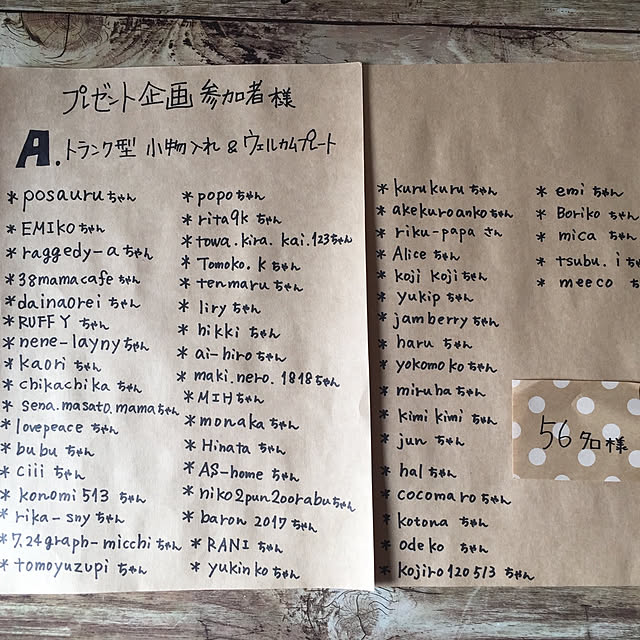 プレゼント企画 参加者様
A. トランク型 小物入れ & ウェルカムプレート
* posauruちゃん
* EMIKOちゃん
* raggedy-aちゃん
* 38mamacafeちゃん
* dainaoreiちゃん
* RUFFYちゃん
* nene-laynyちゃん
* kaoriちゃん
* chikachikaちゃん
* sena.masato.mamaちゃん
* lovepeaceちゃん
* bubuちゃん
* ciiiちゃん
* konomi513ちゃん
* rika-snyちゃん
* 7.24graph-micchiちゃん
* tomoyuzupiちゃん
* popoちゃん
* rita9kちゃん
* towa.kira.kai.123ちゃん
* Tomoko.kちゃん
* tenmaruちゃん
* liryちゃん
* hikkiちゃん
* ai-hiroちゃん
* maki.nero.1818ちゃん
* MIHちゃん
* monakaちゃん
* Hinataちゃん
* AS-homeちゃん
* niko2pun2oorabuちゃん
* baron2017ちゃん
* RANIちゃん
* yukinkoちゃん
* kurukuruちゃん
* akekuroankoちゃん
* riku-papaさん
* Aliceちゃん
* kojikojiちゃん
* yukipちゃん
* jamberryちゃん
* haruちゃん
* yokomokoちゃん
* miruhaちゃん
* kimikimiちゃん
* junちゃん
* halちゃん
* cocomaroちゃん
* kotonaちゃん
* odekoちゃん
* kojiro120513ちゃん
* emiちゃん
* Borikoちゃん
* micaちゃん
* tsubu.iち
* meecoち
56名様